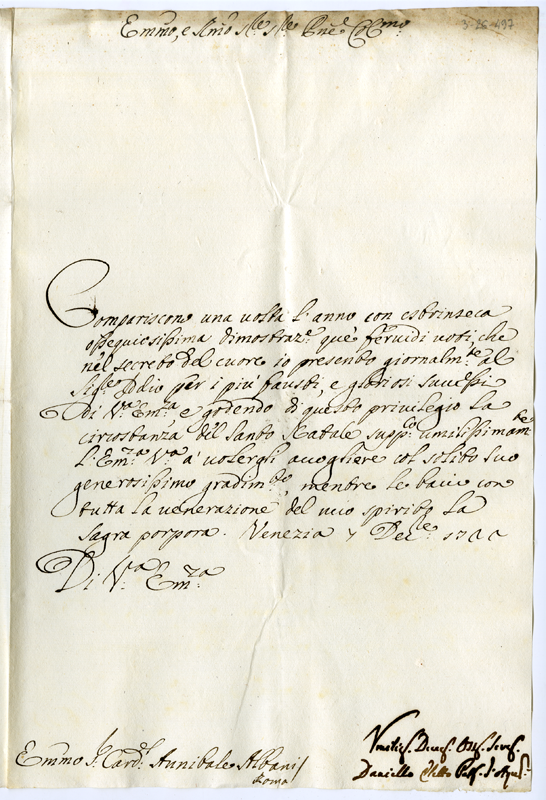 Emmo, e Rmo Sre Sre Pne Colmo
3-26-497
Compariscono una volta l'anno con estrinseca
ossequiosissima dimostraze que' fervidi voti, che
nel secreto del cuore io presento giornalmte al
Sigre Iddio per i più fausti, e gloriosi successi
di Vra Emza e godendo di questo privilegio la
circostanza del Santo Natale suppco umilissimamte
l'Emza Vra a' volergli accogliere col solito suo
generosissimo gradimto, mentre le bacio con
tutta la venerazione del mio spirito la
Sagra porpora. Venezia 7 Dece
Di Vra Emza
Emmo Sr Cardl Annibale Albani
Roma
Daniello